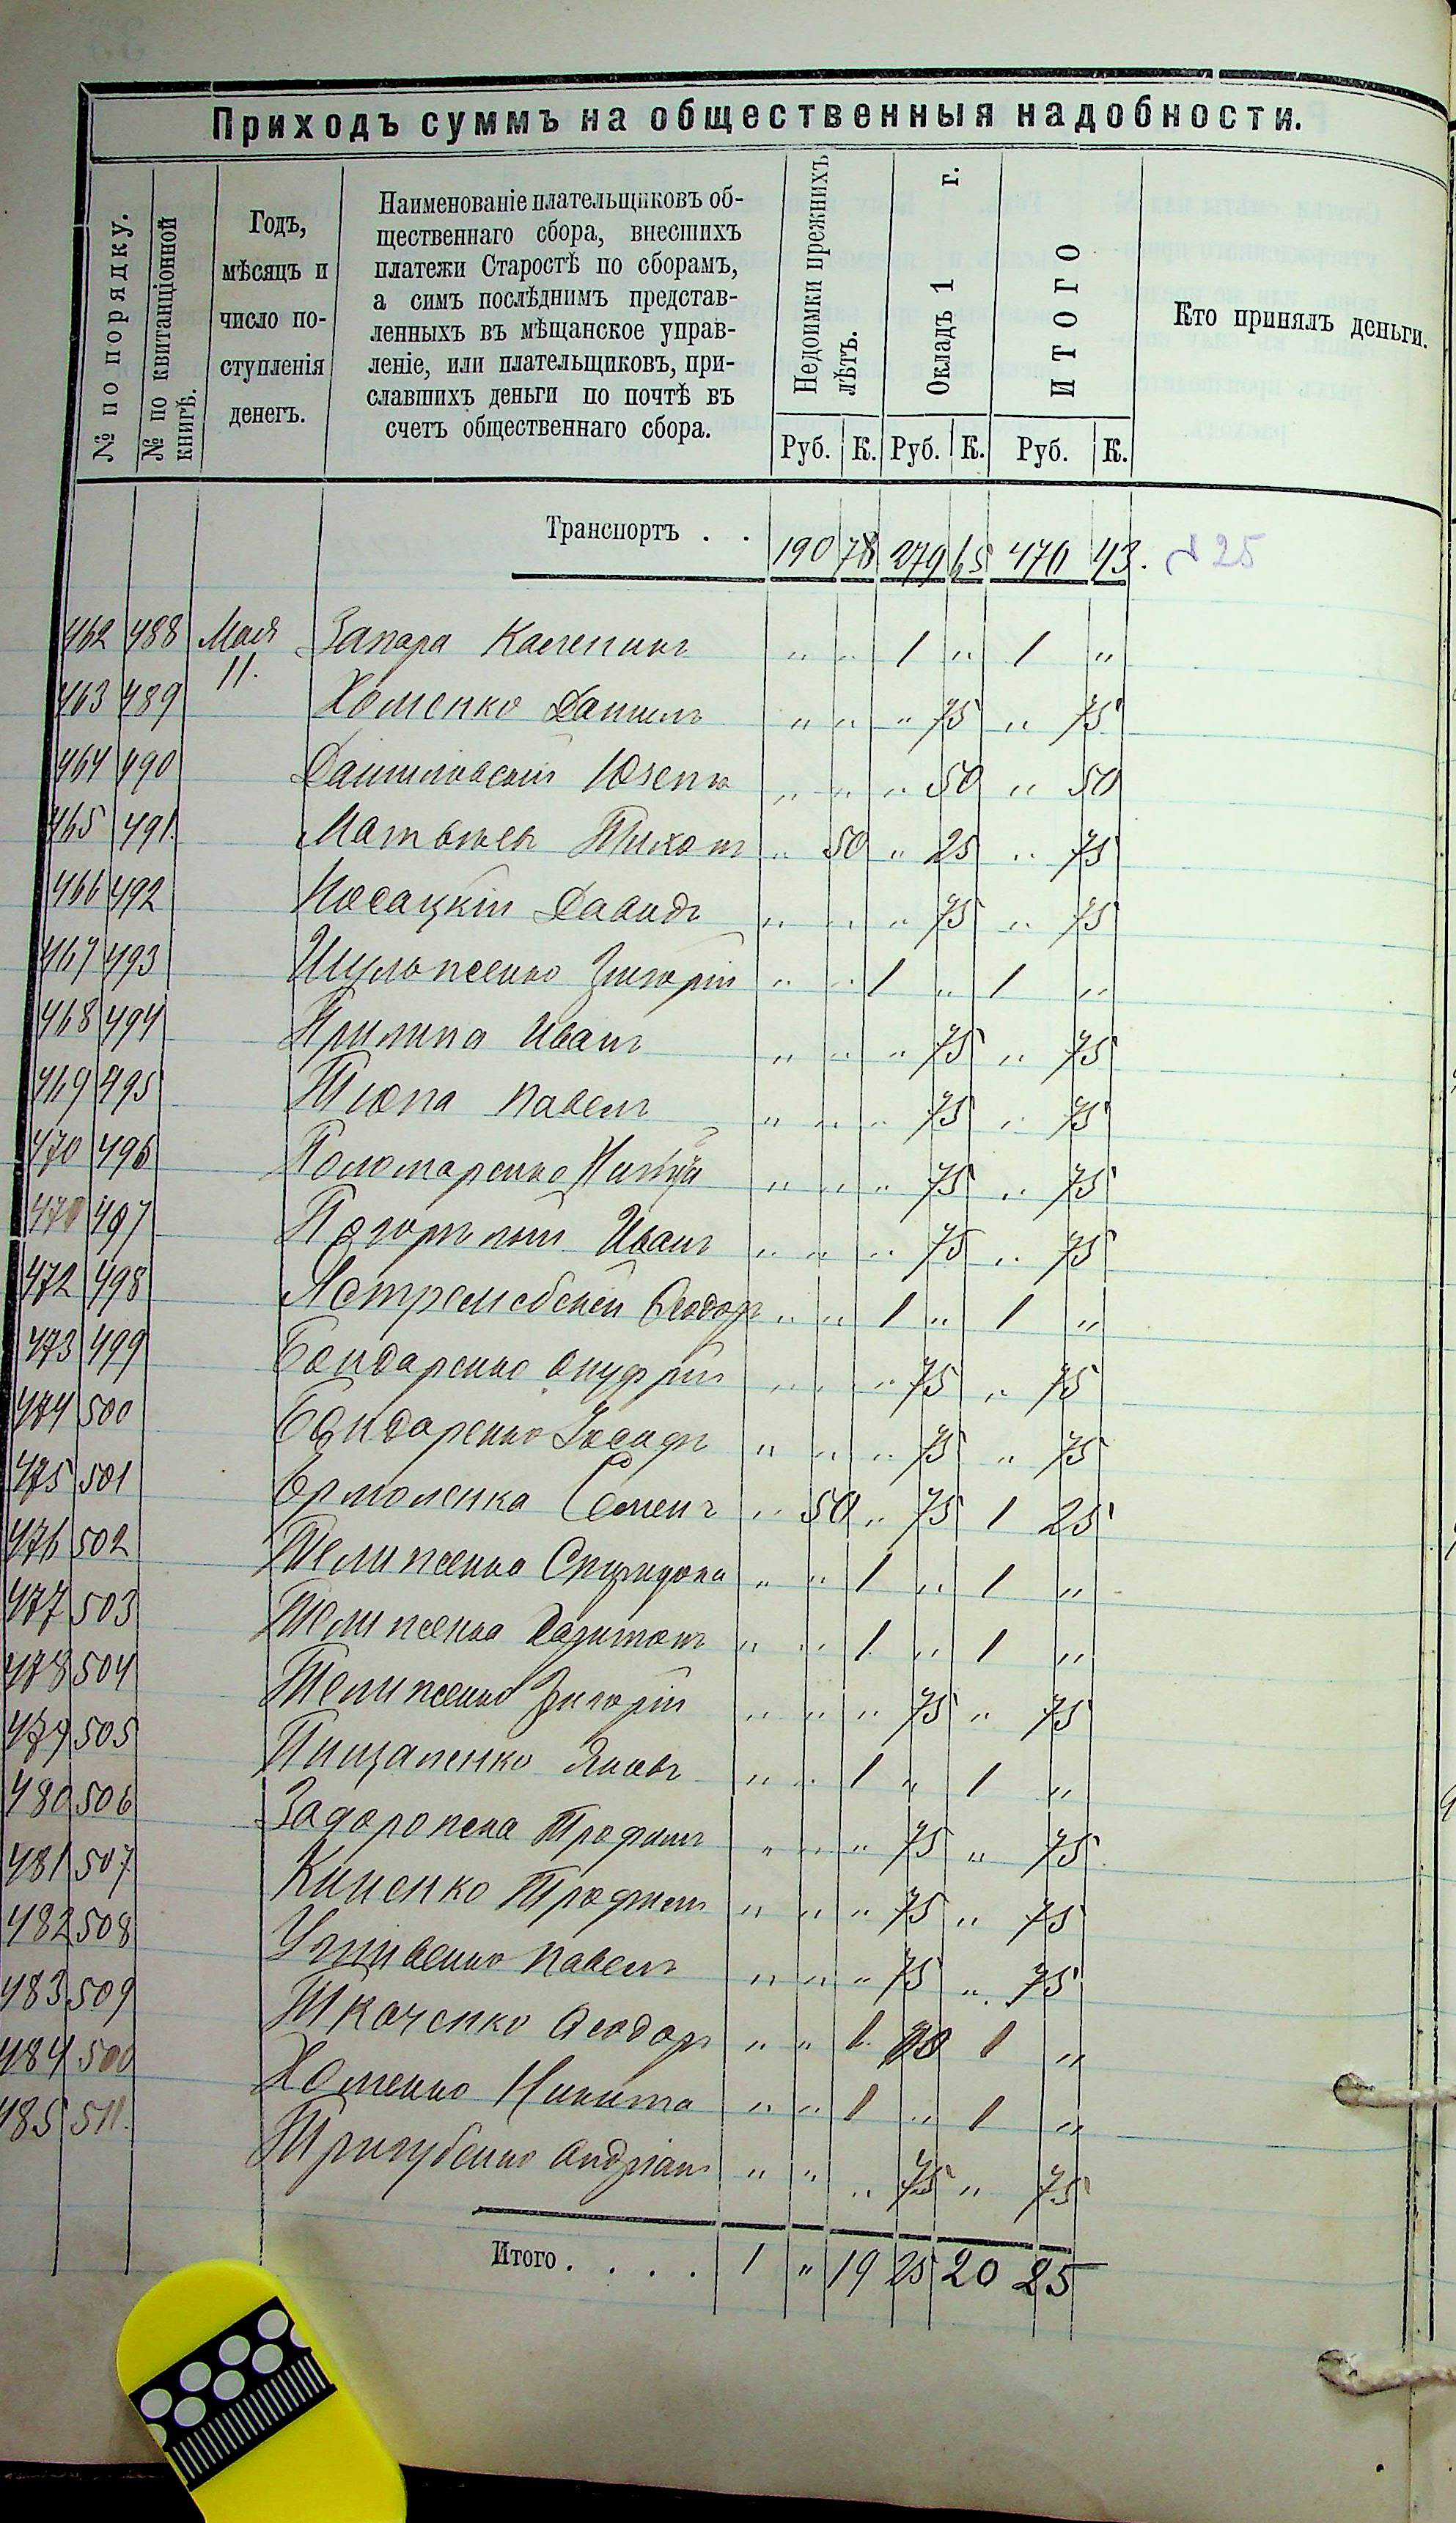 Приходъ суммъ на общественныя надобности.
№ по порядку.
№ по квитанціонной книгѣ.
Годъ,
мѣсяцъ и
число по-
ступленія
денегъ.
Наименованіе плательщиковъ об-
щественнаго сбора, внесшихъ
платежи Старостѣ по сборамъ,
а симъ послѣднимъ представ-
ленныхъ въ мѣщанское управ-
леніе, или плательщиковъ, при-
славшихъ деньги по почтѣ въ
счетъ общественнаго сбора.
Недоимки прежнихъ лѣтъ.
Окладъ 1 г.
ИТОГО
Кто принялъ деньги.
Руб. К. Руб. К. Руб. К.
Транспортъ . . 190 78 279 65 470 43. 25
462 488 Мая 11. Запара " " 1 " 1 "
463 489 Хоменко Даниилъ " " " 75 " 75
464 490 Даниловскій Юзепъ " " " 50 " 50
465 491. Тихонъ " 50 " 25 " 75
466 492 Носацкій Давидъ " " " 75 " 75
467 493 Шульженко Григорій " " 1 " 1 "
468 494 Прилипа Иванъ " " " 75 " 75
469 495 Тюпа Павелъ " " " 75 " 75
470 496 Пономаренко " " " 75 " 75
497 Погорѣлый Иванъ " " " 75 " 75
472 498 Ястремебскій Ѳеодоръ " " 1 " 1 "
473 499 Бондаренко Онуфрій " " " 75 " 75
474 500 Бондаренко Іосафъ " " " 75 " 75
475 501 Ермоленка Семенъ " 50 " 75 1 25
476 502 Телиженка Спиридона " " 1 " 1 "
477 503 Телиженка Харитонъ " " 1 " 1 "
478 504 Телиженко Григорій " " " 75 " 75
479 505 Пищаленко Яковъ " " 1 " 1 "
480 506 Задорожна Трофимъ " " " 75 " 75
481 507 Киценко Трофимъ " " " 75 " 75
482 508 Павелъ " " " 75 " 75
483 509 Ткаченко Ѳеодоръ " " 1 1 "
484 500 Хоменко Никита " " 1 " 1 "
485 511. Тригубенко Андріанъ " " " 75 " 75
Итого . . . . 1 " 19 25 20 25